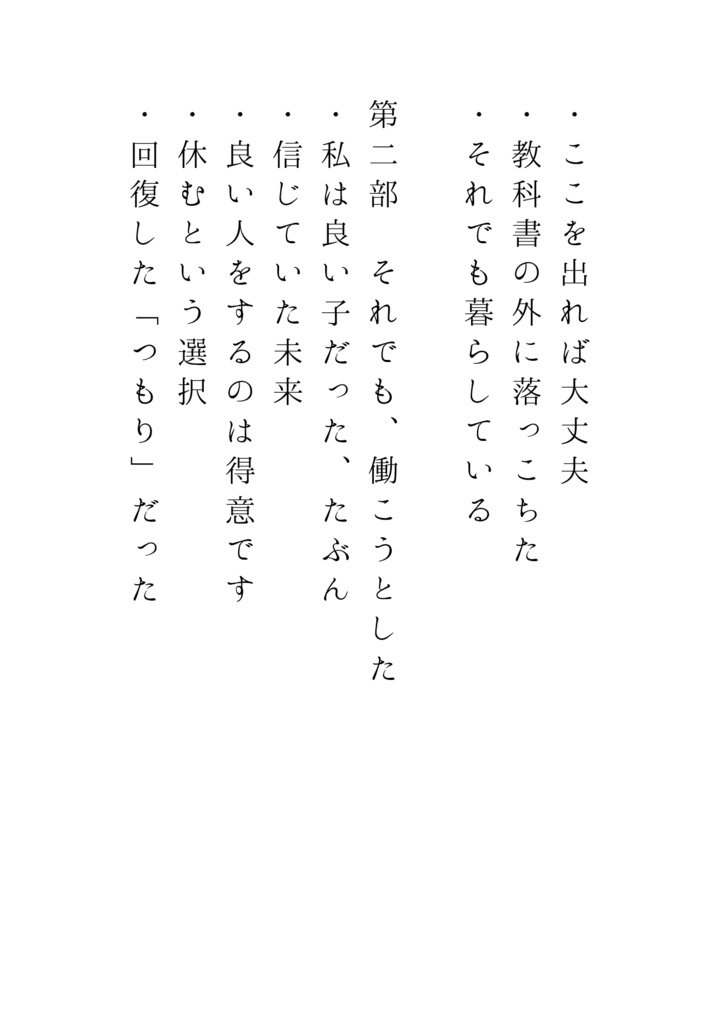 ・ここを出れば大丈夫
・教科書の外に落っこちた
・それでも暮らしている
第二部　それでも、働こうとした
・私は良い子だった、たぶん
・信じていた未来
・良い人をするのは得意です
・休むという選択
・回復した「つもり」だった